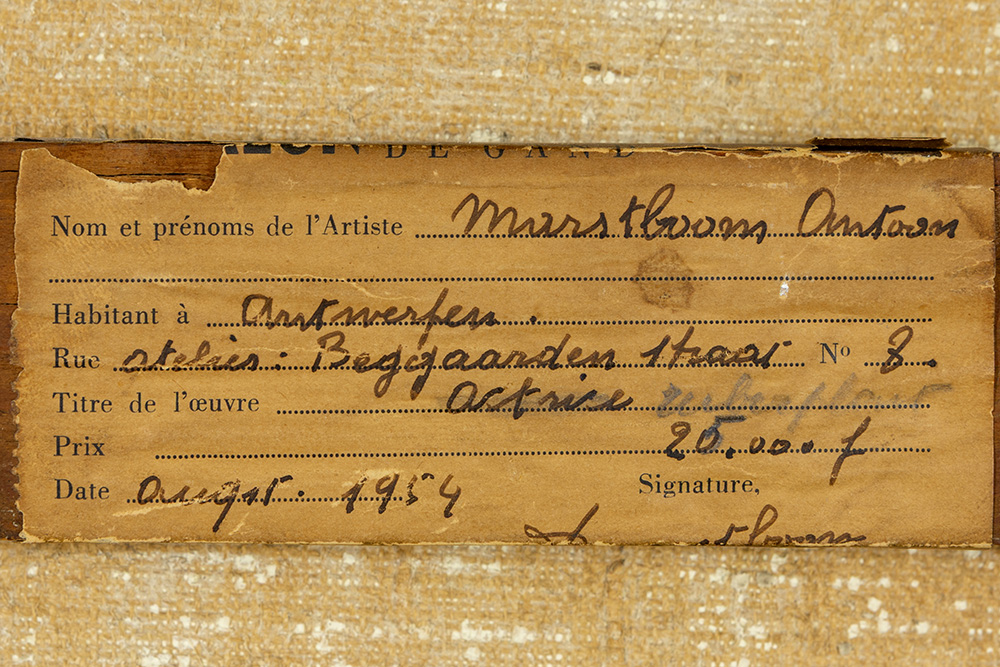 DE GAND
Nom et prénoms de l'Artiste Marstboom Antoon
Habitant à Antwerpen.
Rue atelier: Beggaardenstraat N° 8.
Titre de l'œuvre actrice
Prix 25.000 f
Date August. 1954 Signature,